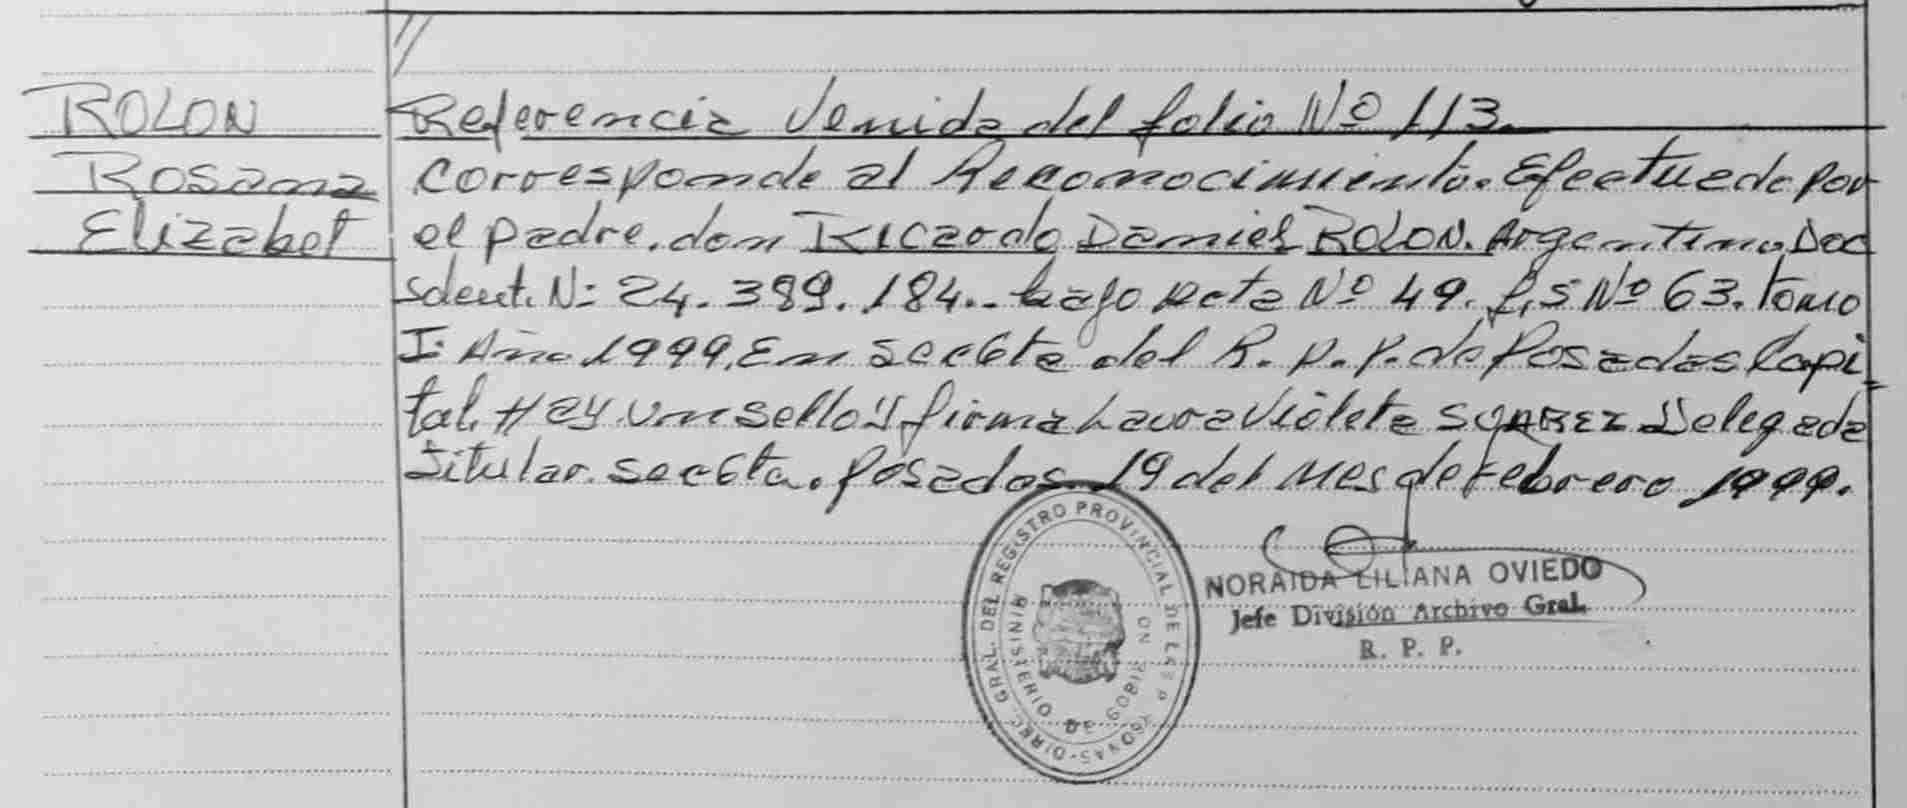 ROLON
Rosana
Elizabet
//
Referencia Venida del folio Nº 113.
corresponde al Reconocimiento. Efectuado por
el padre. don Ricardo Daniel ROLON. Argentino. Doc
Ident. N: 24.389.184.. bajo acta Nº 49. f,s Nº 63. Tomo
I. Año 1999. En secc 6ta del R. p. p. de Posadas Capi
tal. Hay un sello y firma Laura Violeta SUAREZ Delegada
Titular. secc 6ta. Posadas 19 del Mes de Febrero 1999.
DIREC. GRAL. DEL REGISTRO PROVINCIAL DE LAS P
MINISTERIO DE GOBIERNO
NORAIDA LILIANA OVIEDO
Jefe División Archivo Gral.
R. P. P.